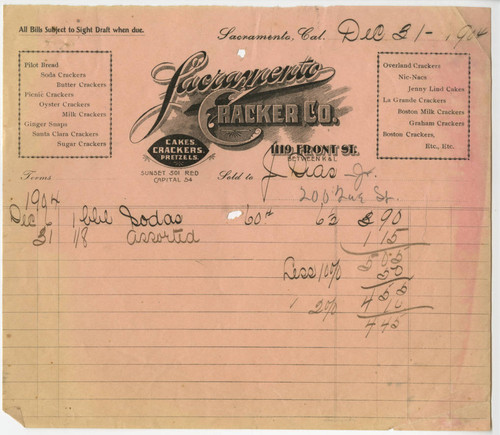 All Bills Subject to Sight Draft when due.
Sacramento, Cal. Dec 31- 1904
Pilot Bread
Soda Crackers
Butter Crackers
Picnic Crackers
Oyster Crackers
Milk Crackers
Ginger Snaps
Santa Clara Crackers
Sugar Crackers
Sacramento
Cracker Co.
CAKES,
CRACKERS,
PRETZELS.
SUNSET 501 RED
CAPITAL 54
1119 FRONT ST.
BETWEEN K & L
Overland Crackers
Nic-Nacs
Jenny Lind Cakes
La Grande Crackers
Boston Milk Crackers
Graham Crackers
Boston Crackers,
Etc., Etc.
Terms
Sold to J. Dias Jr.
200 St.
1904
Dec 1 bbl Sodas 60# 6½ 3 90
31 1/8 Assorted 1 15
5 05
Less 10% 50
4 55
" 2% 10
4 45